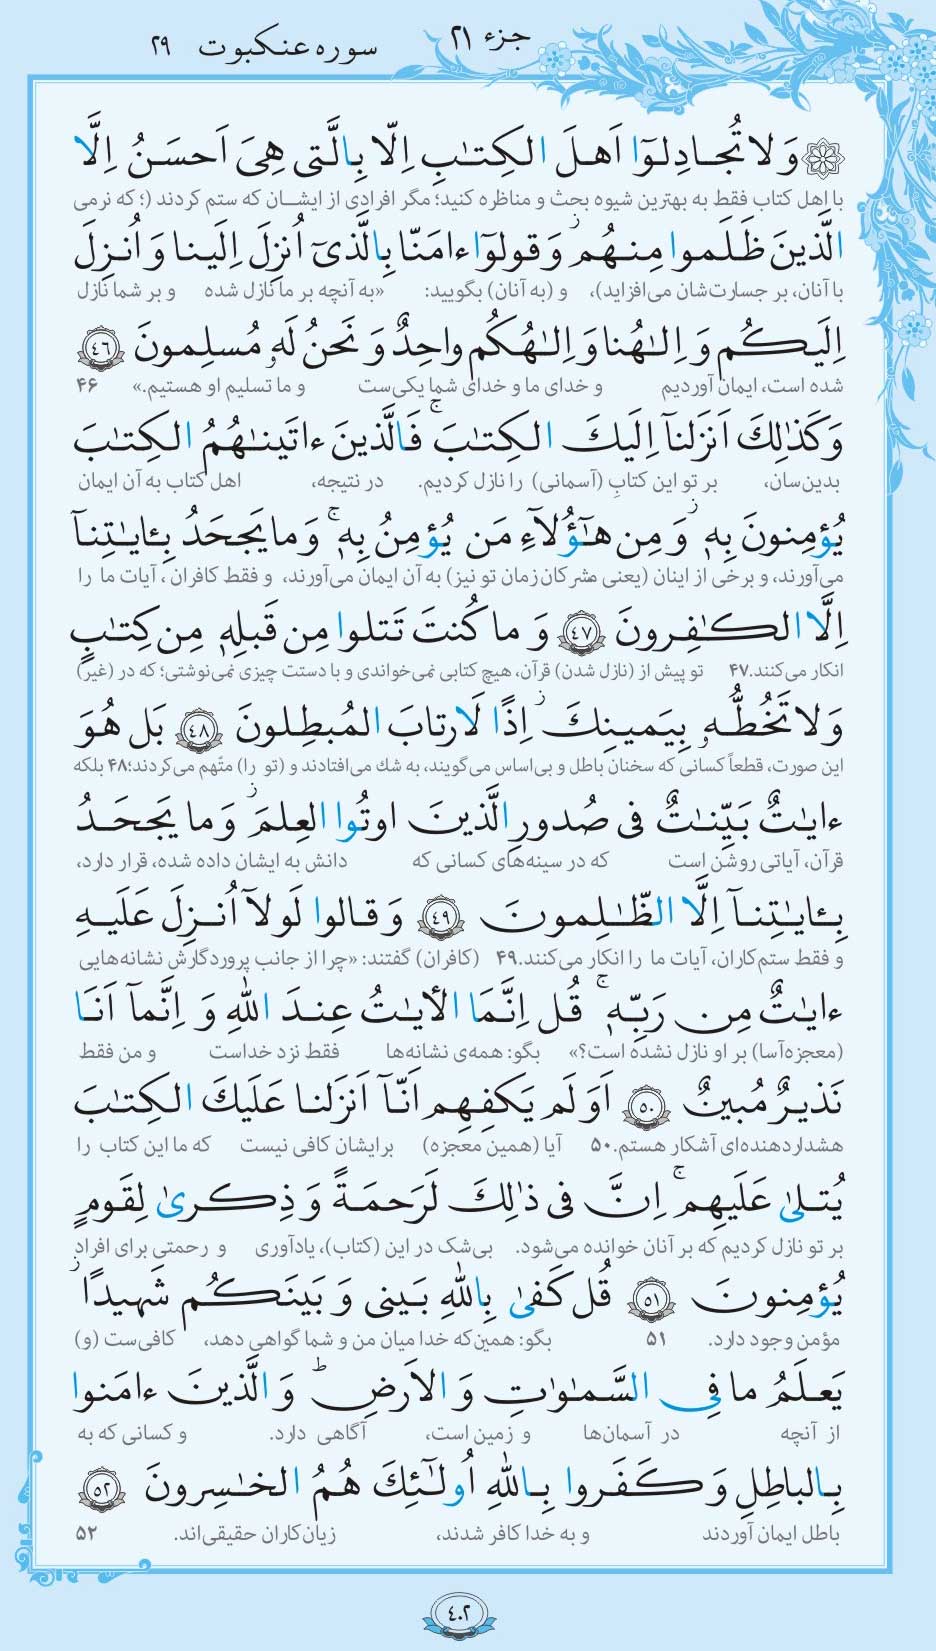 جزء ۲۱
سوره عنکبوت ۲۹
۞ وَ لا تُجادِلوٓا اَهلَ الكِتٰبِ اِلّا بِالَّتى هِىَ اَحسَنُ اِلَّا
با اهل کتاب فقط به بهترین شیوه بحث و مناظره کنید؛ مگر افرادی از ایشان که ستم کردند (؛ که نرمی
الَّذينَ ظَلَموا مِنهُم ۖز وَ قولوٓا ءامَنّا بِالَّذىٓ اُنزِلَ اِلَينا وَ اُنزِلَ
با آنان، بر جسارت‌شان می‌افزاید)، و (به آنان) بگویید: «به آنچه بر ما نازل شده و بر شما نازل
اِلَيكُم وَ اِلٰهُنا وَ اِلٰهُكُم واحِدٌ وَ نَحنُ لَهٗ مُسلِمونَ ﴿٤٦﴾
شده است، ایمان آوردیم و خدای ما و خدای شما یکی‌ست و ما تسلیم او هستیم.» ۴۶
وَ كَذٰلِكَ اَنزَلنآ اِلَيكَ الكِتٰبَ ۚ فَالَّذينَ ءاتَينٰهُمُ الكِتٰبَ
بدین‌سان، بر تو این کتابِ (آسمانی) را نازل کردیم. در نتیجه، اهل کتاب به آن ایمان
يُؤمِنونَ بِهٖ ز وَ مِن هٰٓؤُلآءِ مَن يُؤمِنُ بِهٖ ۚ وَ ما يَجحَدُ بِـٔايٰتِنآ
می‌آورند، و برخی از اینان (یعنی مشرکان زمان تو نیز) به آن ایمان می‌آورند، و فقط کافران ، آیات ما را
اِلَّا الكٰفِرونَ ﴿٤٧﴾ وَ ما كُنتَ تَتلوا مِن قَبلِهٖ مِن كِتٰبٍ
انکار می‌کنند.۴۷ تو پیش از (نازل شدن) قرآن، هیچ کتابی نمی‌خواندی و با دستت چیزی نمی‌نوشتی؛ که در (غیر)
وَ لا تَخُطُّهٗ بِيَمينِكَ ز اِذًا لَارتابَ المُبطِلونَ ﴿٤٨﴾ بَل هُوَ
این صورت، قطعاً کسانی که سخنان باطل و بی‌اساس می‌گویند، به شك می‌افتادند و (تو را) متّهم می‌کردند؛۴۸ بلکه
ءايٰتٌ بَيِّنٰتٌ فى صُدورِ الَّذينَ اوتُوا العِلمَ ز وَ ما يَجحَدُ
قرآن، آیاتی روشن است که در سینه‌های کسانی که دانش به ایشان داده شده، قرار دارد،
بِـٔايٰتِنآ اِلَّا الظّٰلِمونَ ﴿٤٩﴾ وَ قالوا لَولآ اُنزِلَ عَلَيهِ
و فقط ستم‌کاران، آیات ما را انکار می‌کنند.۴۹ (کافران) گفتند: «چرا از جانب پروردگارش نشانه‌هایی
ءايٰتٌ مِن رَبِّهٖ ۚ قُل اِنَّمَا الأيٰتُ عِندَ اللّٰهِ وَ اِنَّمآ اَنَا
(معجزه‌آسا) بر او نازل نشده است؟» بگو: همه‌ی نشانه‌ها فقط نزد خداست و من فقط
نَذيرٌ مُبينٌ ﴿٥٠﴾ اَوَ لَم يَكفِهِم اَنّآ اَنزَلنا عَلَيكَ الكِتٰبَ
هشداردهنده‌ای آشکار هستم.۵۰ آیا (همین معجزه) برایشان کافی نیست که ما این کتاب را
يُتلىٰ عَلَيهِم ۚ اِنَّ فى ذٰلِكَ لَرَحمَةً وَ ذِكرىٰ لِقَومٍ
بر تو نازل کردیم که بر آنان خوانده می‌شود. بی‌شک در این (کتاب)، یادآوری و رحمتی برای افراد
يُؤمِنونَ ﴿٥١﴾ قُل كَفىٰ بِاللّٰهِ بَينى وَ بَينَكُم شَهيدًا ز
مؤمن وجود دارد. ۵۱ بگو: همین‌که خدا میان من و شما گواهی دهد، کافی‌ست (و)
يَعلَمُ ما فِى السَّمٰوٰتِ وَ الاَرضِ ؕ وَ الَّذينَ ءامَنوا
از آنچه در آسمان‌ها و زمین است، آگاهی دارد. و کسانی که به
بِالباطِلِ وَ كَفَروا بِاللّٰهِ اُولٰٓئِكَ هُمُ الخٰسِرونَ ﴿٥٢﴾
باطل ایمان آوردند و به خدا کافر شدند، زیان‌کاران حقیقی‌اند. ۵۲
٤٠٢